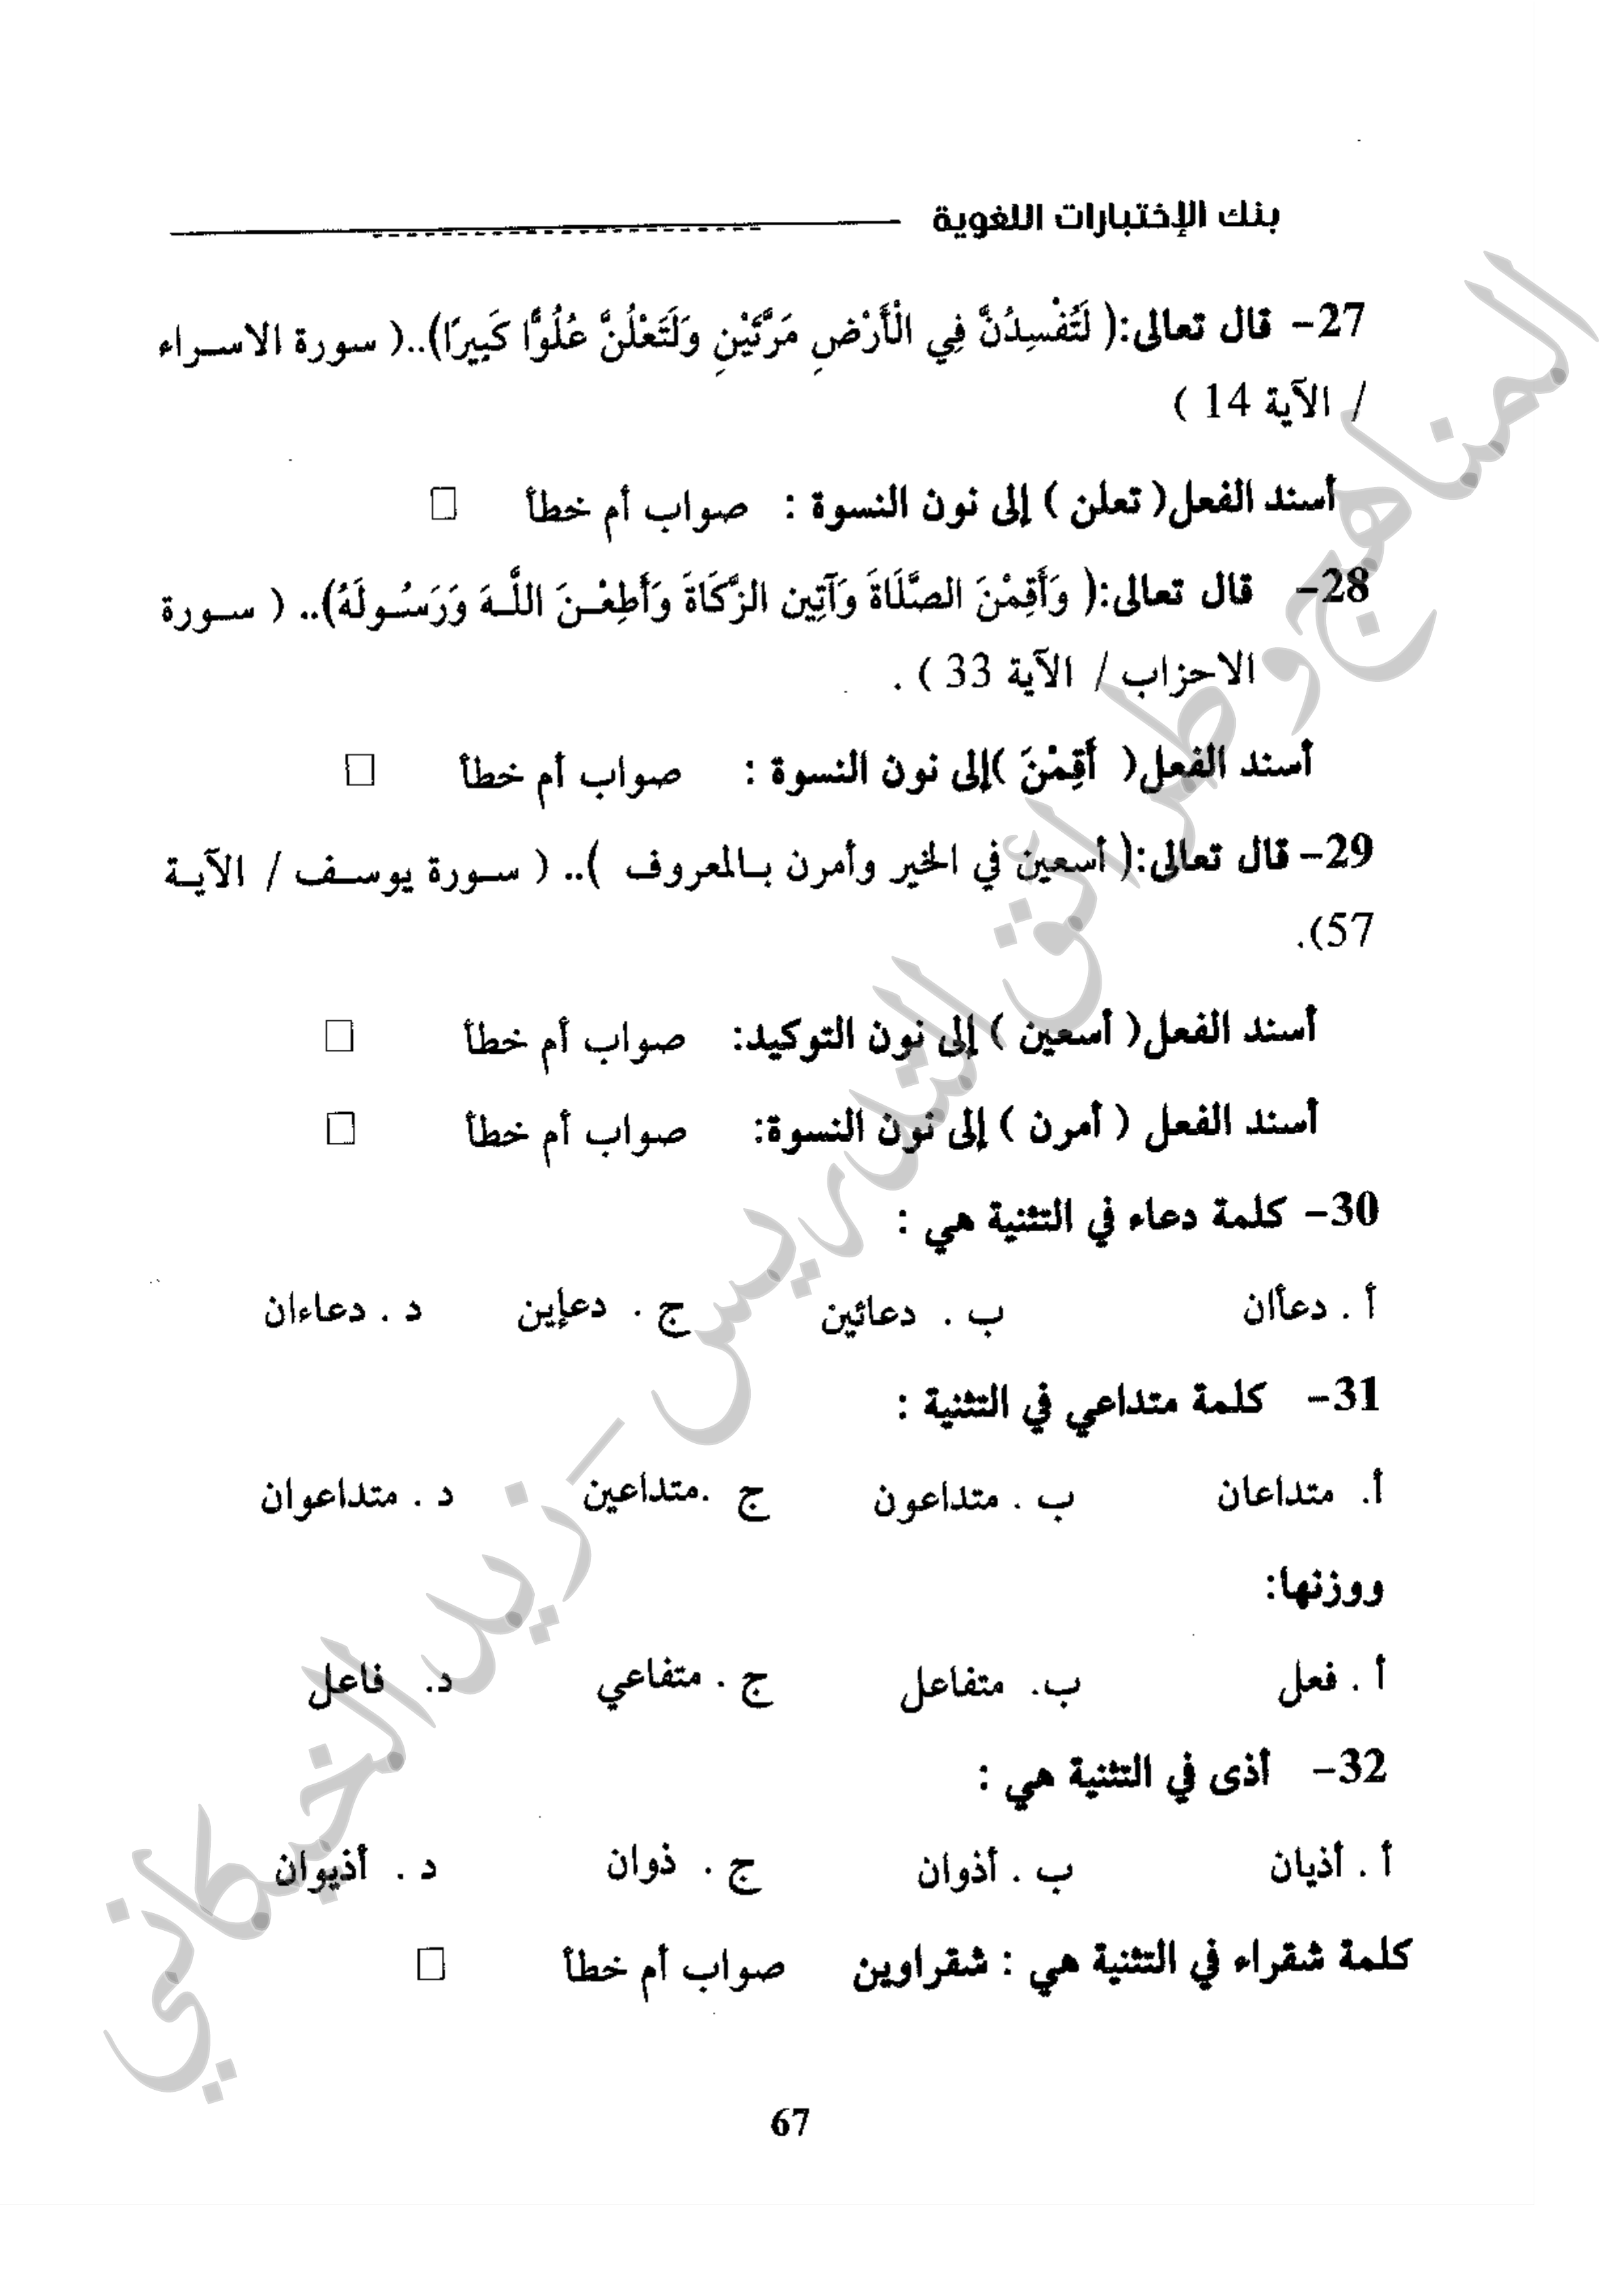 بنك الإختبارات اللغوية
27- قال تعالى:( لَتُفْسِدُنَّ فِي الْأَرْضِ مَرَّتَيْنِ وَلَتَعْلُنَّ عُلُوًّا كَبِيرًا)..( سورة الاسراء
/ الآية 14 )
أسند الفعل( تعلن ) إلى نون النسوة : صواب أم خطأ □
28- قال تعالى:( وَأَقِمْنَ الصَّلَاةَ وَآتِين الزَّكَاةَ وَأَطِعْنَ اللَّهَ وَرَسُولَهُ).. ( سورة
الاحزاب / الآية 33 ) .
أسند الفعل( أَقِمْنَ )إلى نون النسوة : صواب أم خطأ □
29- قال تعالى:( أسعين في الخير وأمرن بالمعروف ).. ( سورة يوسف / الآية
57).
أسند الفعل( أسعين ) إلى نون التوكيد: صواب أم خطأ □
أسند الفعل ( أمرن ) إلى نون النسوة: صواب أم خطأ □
30- كلمة دعاء في التثنية هي :
أ . دعأان ب . دعائين ج . دعإين د . دعاءان
31- كلمة متداعي في التثنية :
أ. متداعان ب . متداعون ج .متداعين د . متداعوان
ووزنها:
أ . فعل ب. متفاعل ج . متفاعي د. فاعل
32- أذى في التثنية هي :
أ . أذيان ب . أذوان ج . ذوان د . أذيوان
كلمة شقراء في التثنية هي : شقراوين صواب أم خطأ □
67
المناهج وطرائق التدريس - زيد الخيكاني